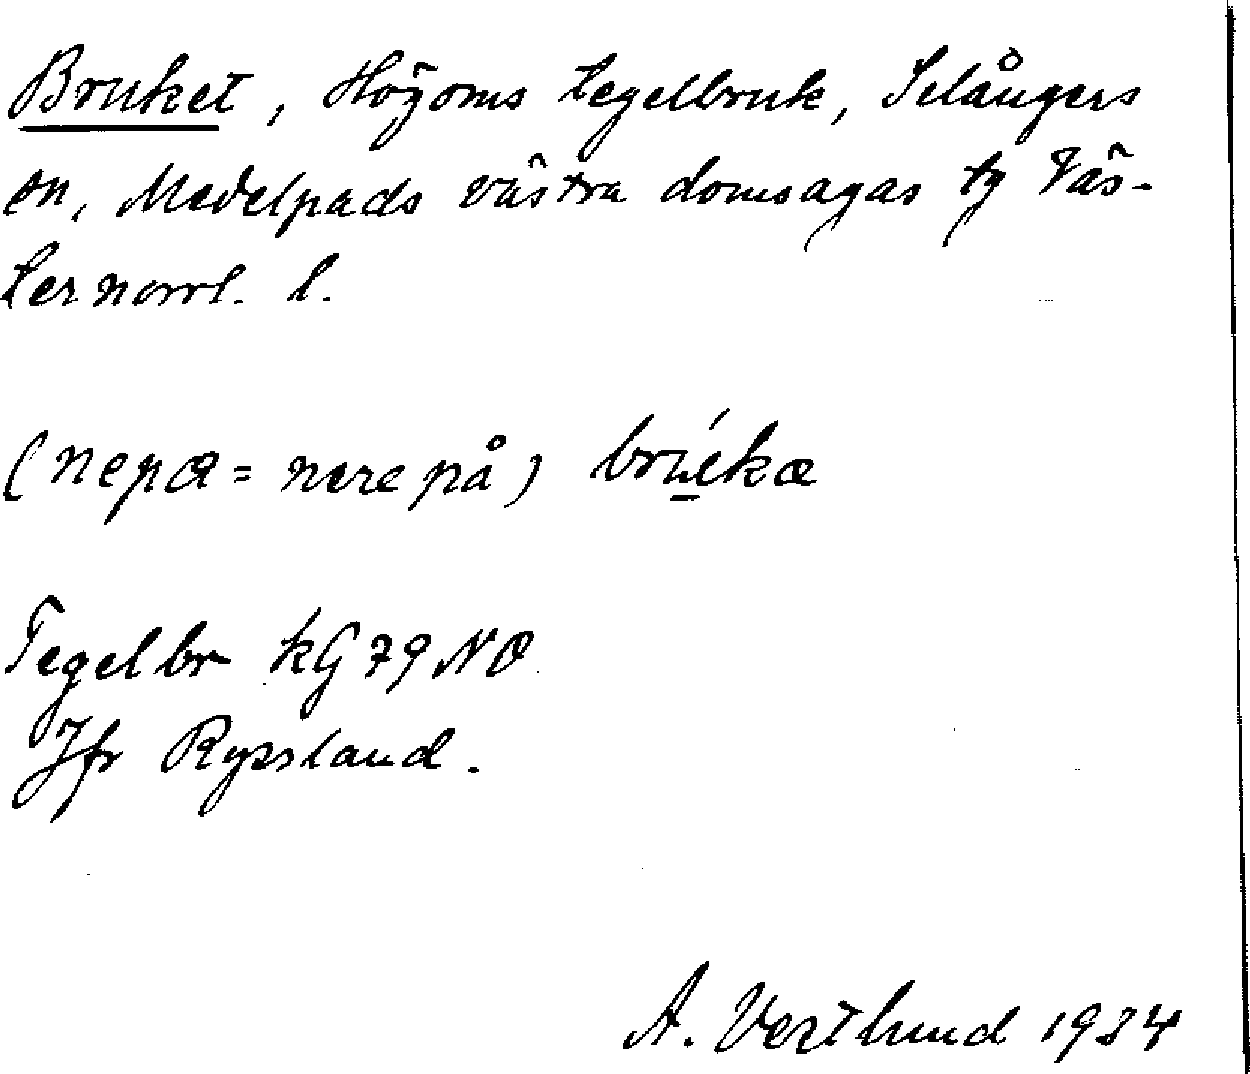 Bruket, Högoms tegelbruk, Selångers
sn, Medelpads västra domsagas tg Väs-
ternorrl. l.
(nepa = nere på) brúka
Tegelbr kG 79 NO
Jfr Ryssland.
A. Vestlund 1934